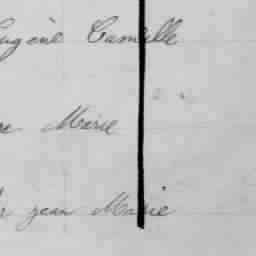 Eugène Camille
Marie
jean Marie